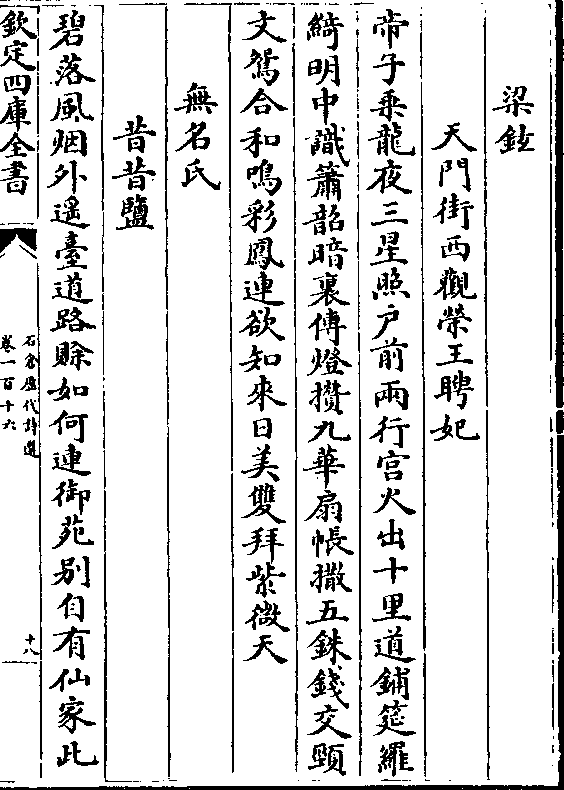 梁鉉
天門街西觀榮王聘妃
帝子乗龍夜三星照户前兩行宫火出十里道鋪筵羅
綺明中識簫韶暗裏傳燈攅九華扇帳撒五銖錢交頸
文鴛合和鳴彩鳳連欲知來日美雙拜紫微天
無名氏
昔昔鹽
碧落風烟外遥臺道路賒如何連御苑别自有仙家此
欽定四庫全書
石倉歴代詩選
卷一百十六
十八